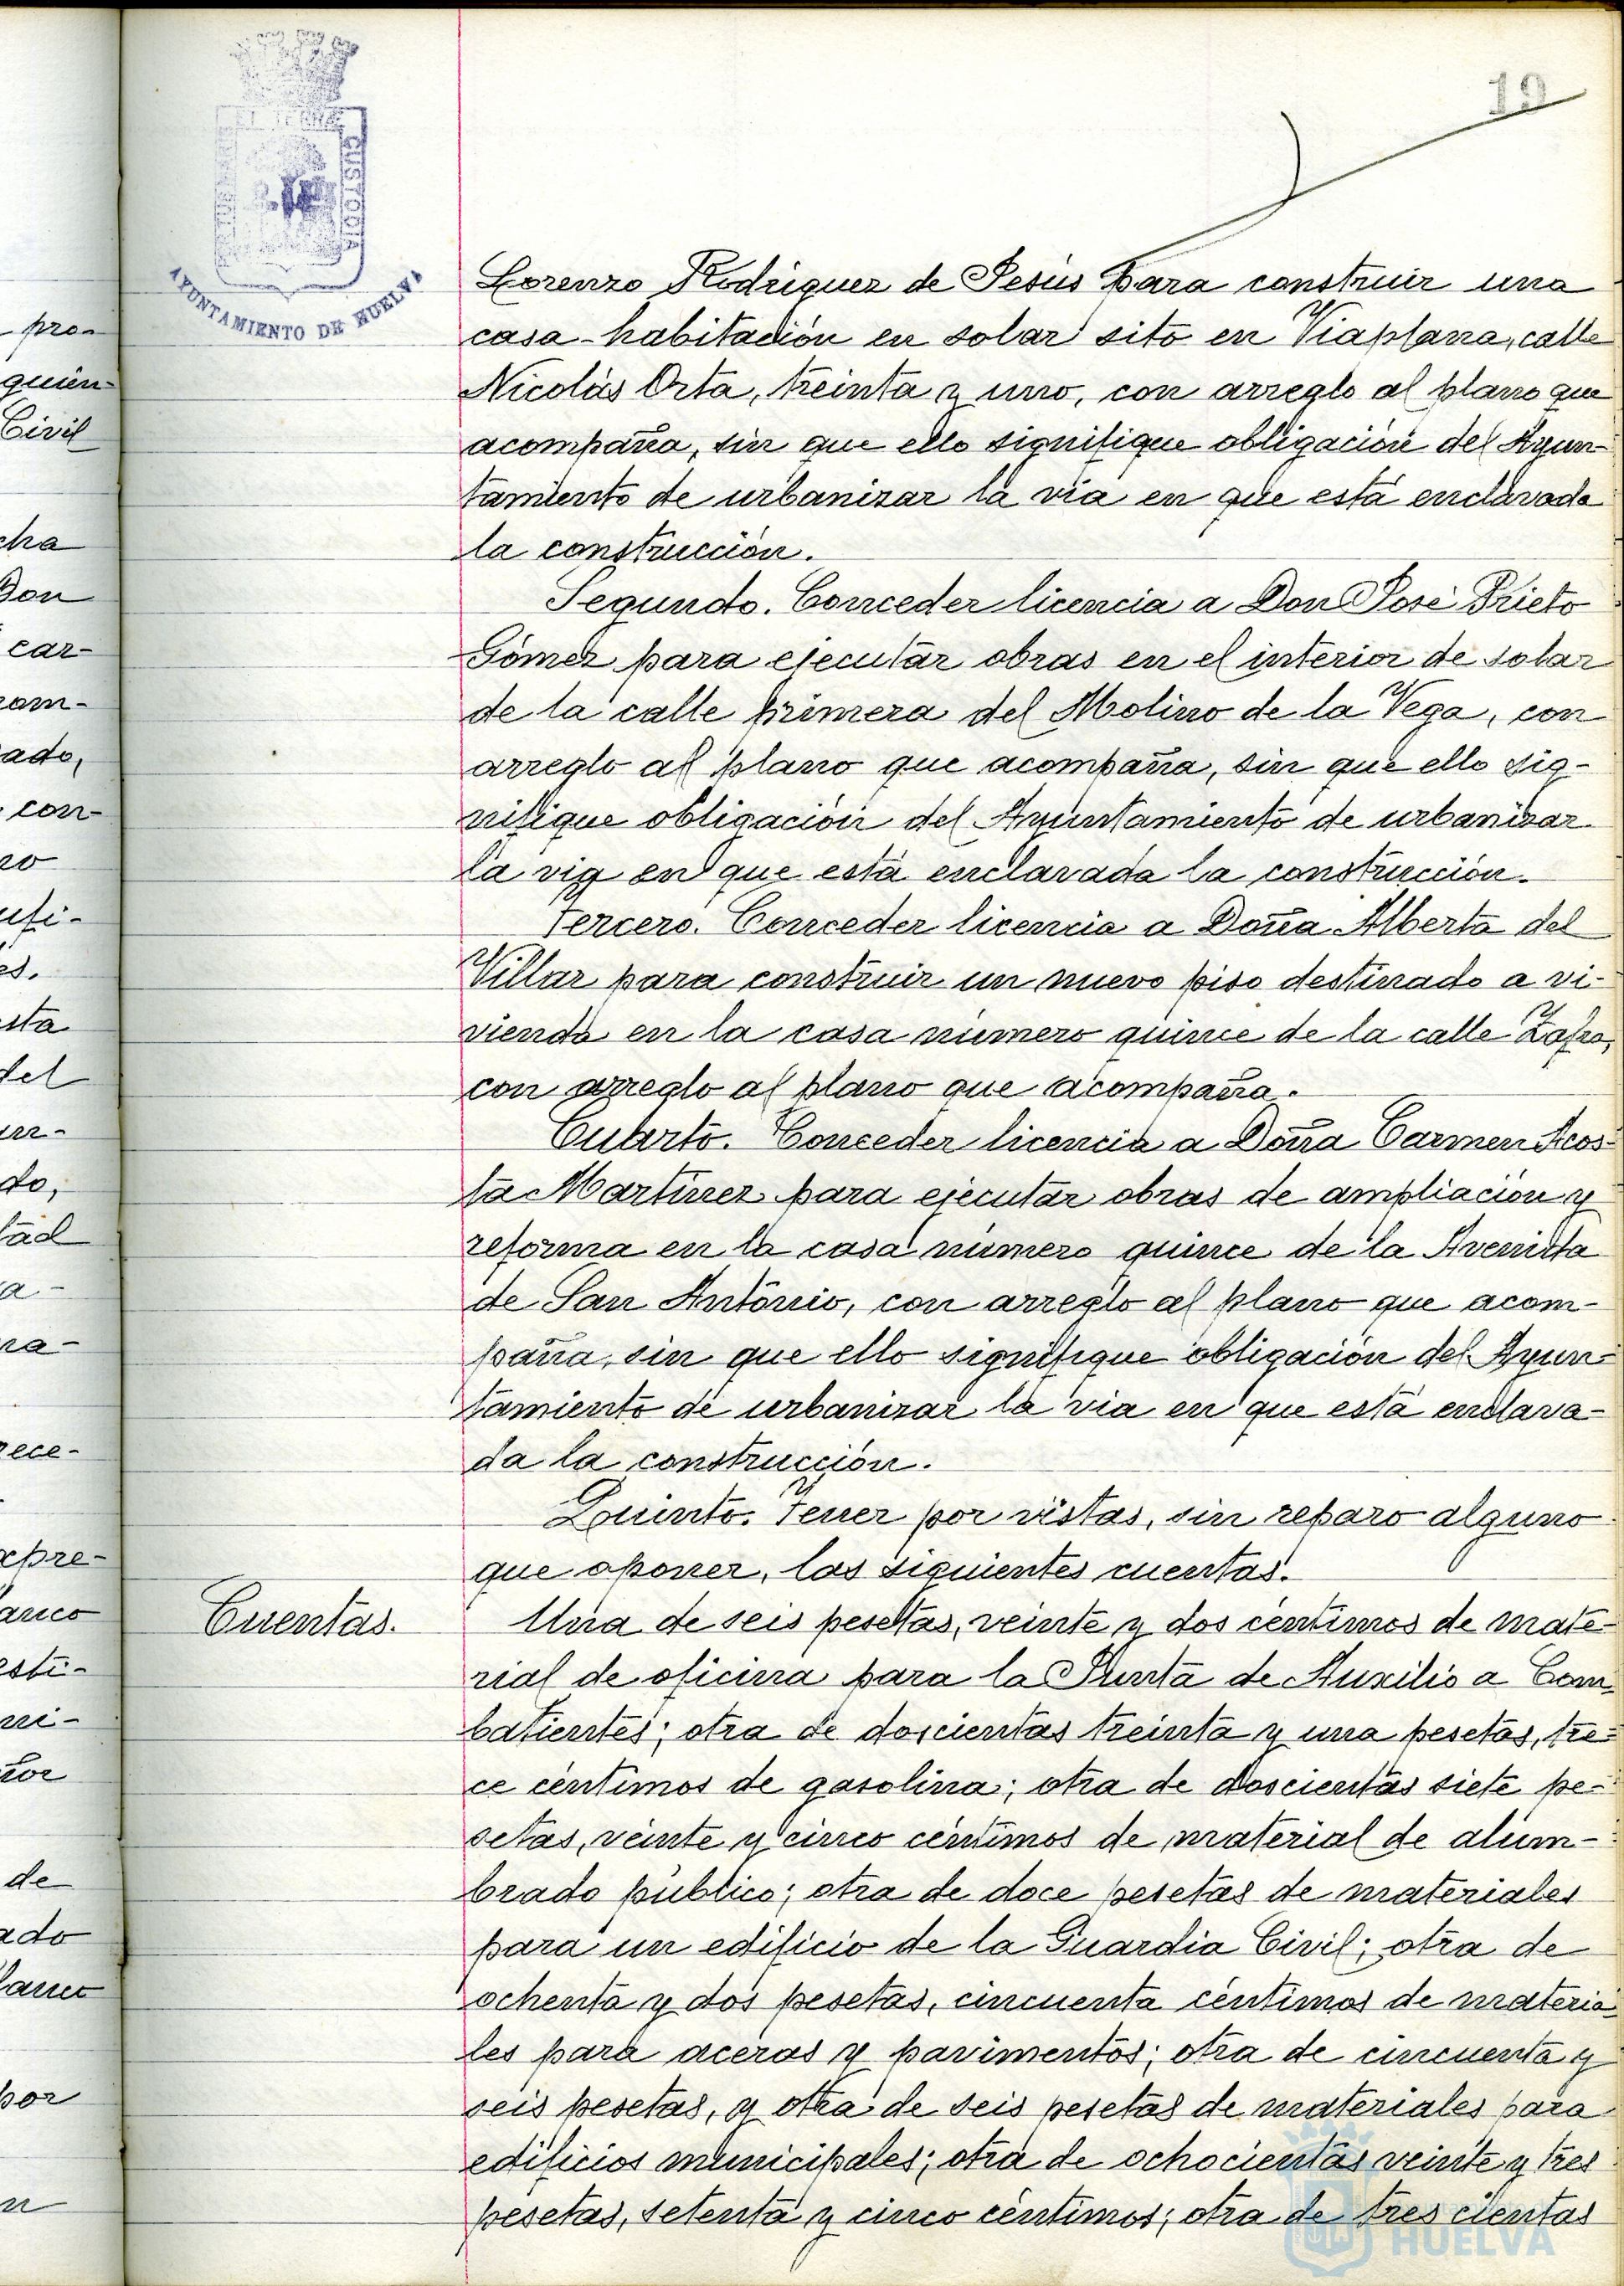 19
CUSTODIA
AYUNTAMIENTO DE HUELVA
Lorenzo Rodriguez de Jesús para construir una
casa-habitación en solar sito en Viaplana, calle
Nicolás Orta, treinta y uno, con arreglo al plano que
acompaña, sin que ello signifique obligación del Ayun-
tamiento de urbanizar la via en que está enclavada
la construcción.
Segundo. Conceder licencia a Don José Prieto
Gómez para ejecutar obras en el interior de solar
de la calle primera del Molino de la Vega, con
arreglo al plano que acompaña, sin que ello sig-
nifique obligación del Ayuntamiento de urbanizar
la via en que está enclavada la construcción.
Tercero. Conceder licencia a Doña Alberta del
Villar para construir un nuevo piso destinado a vi-
vienda en la casa número quince de la calle Zafra,
con arreglo al plano que acompaña.
Cuarto. Conceder licencia a Doña Carmen Acos-
ta Martinez para ejecutar obras de ampliación y
reforma en la casa número quince de la Avenida
de San Antonio, con arreglo al plano que acom-
paña, sin que ello signifique obligación del Ayun-
tamiento de urbanizar la via en que está enclava-
da la construcción.
Quinto. Tener por vistas, sin reparo alguno
que oponer, las siguientes cuentas.
Cuentas.
Una de seis pesetas, veinte y dos céntimos de mate-
rial de oficina para la Junta de Auxilio a Com-
batientes; otra de doscientas treinta y una pesetas, tre-
ce céntimos de gasolina; otra de doscientas siete pe-
setas, veinte y cinco céntimos de material de alum-
brado público; otra de doce pesetas de materiales
para un edificio de la Guardia Civil; otra de
ochenta y dos pesetas, cincuenta céntimos de materia-
les para aceras y pavimentos; otra de cincuenta y
seis pesetas, y otra de seis pesetas de materiales para
edificios municipales; otra de ochocientas veinte y tres
pesetas, setenta y cinco céntimos; otra de tres cientas
HUELVA
pro-
quien-
Civil
cha
Don
car-
com-
ado,
con-
ro
ufi-
es.
sta
del
un-
do,
tad
a-
na-
rece-
xpre-
anco
esti-
ni-
tor
de
ado
lanco
por
n